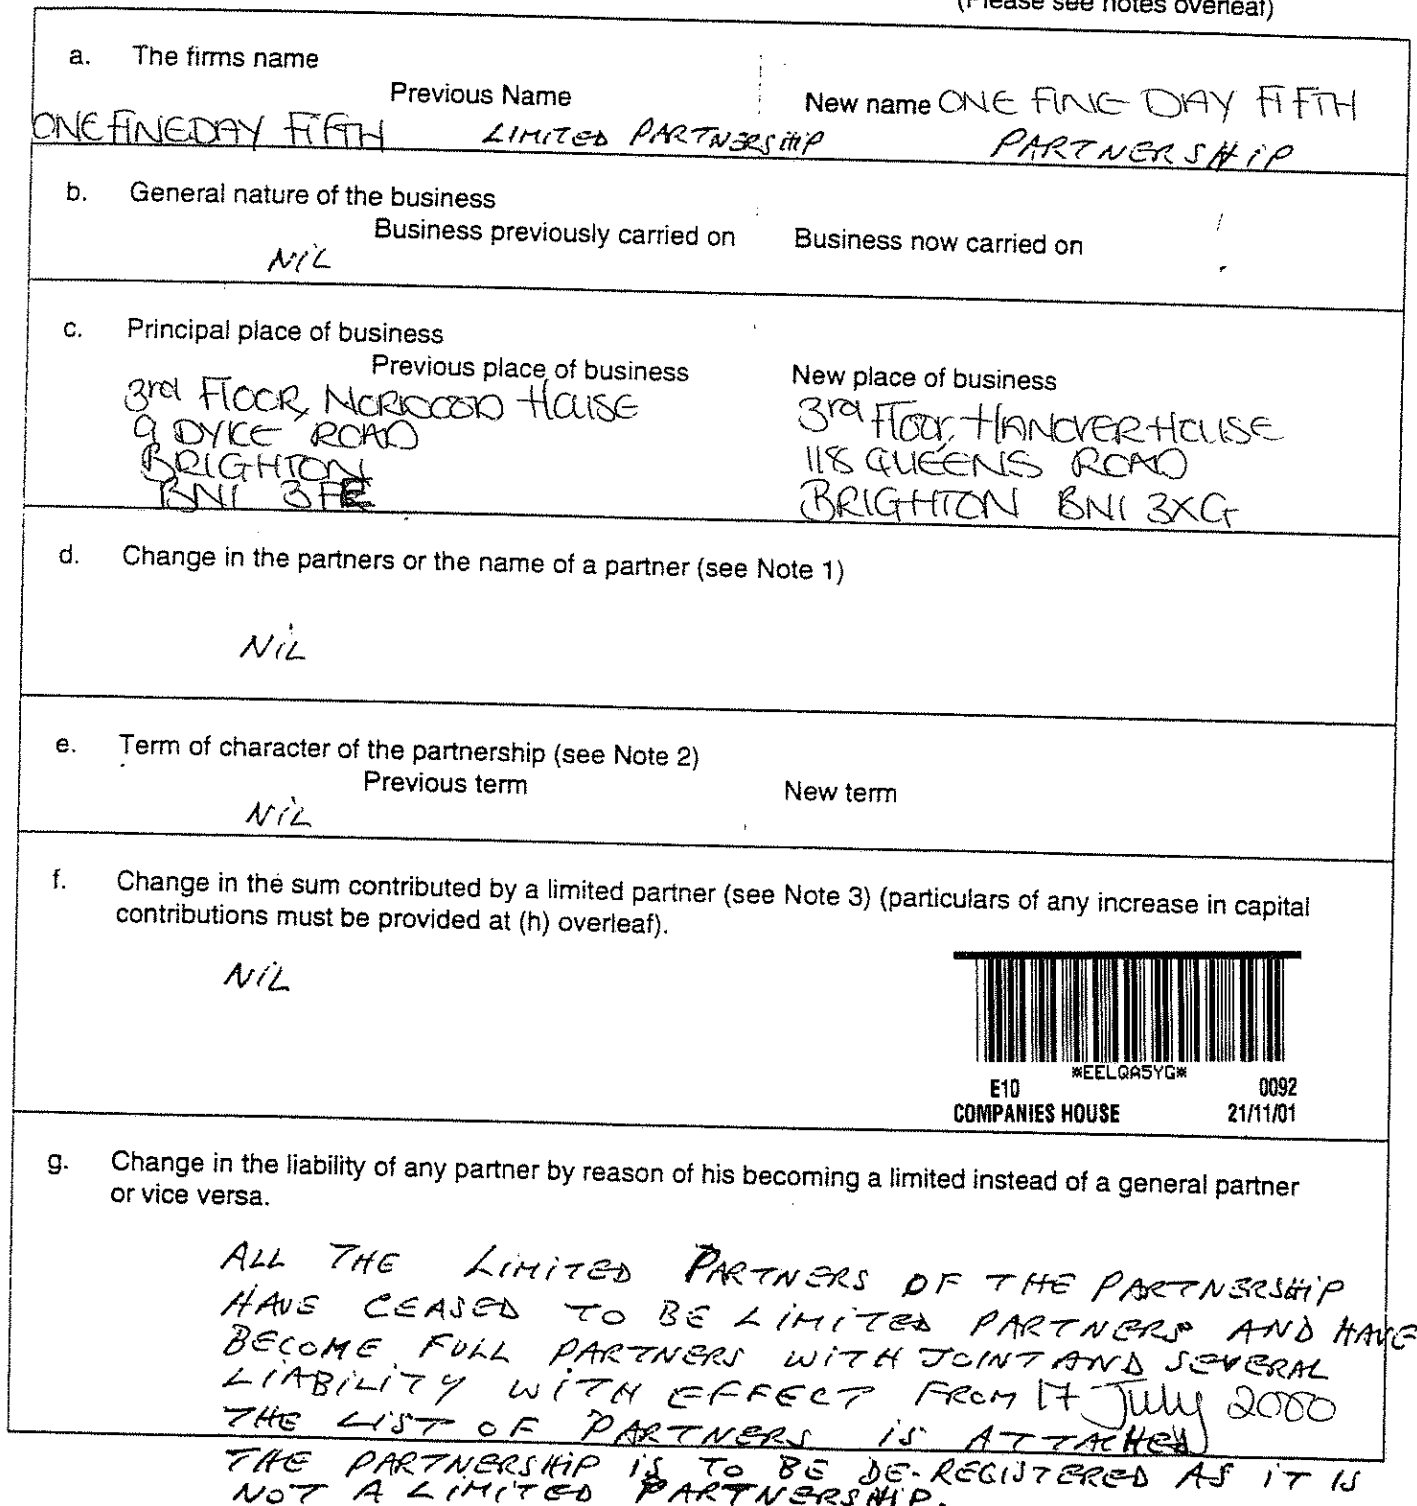 (Please see notes overleaf)
a. The firms name
Previous Name
New name ONE FINE DAY FIFTH
ONE FINE DAY FIFTH LIMITED PARTNERSHIP
PARTNERSHIP
b. General nature of the business
Business previously carried on Business now carried on
NIL
c. Principal place of business
Previous place of business
3rd FLOOR, NORWOOD HOUSE
9 DYKE ROAD
BRIGHTON
BN1 3FE
New place of business
3rd Floor, HANOVER HOUSE
118 QUEENS ROAD
BRIGHTON BN1 3XG
d. Change in the partners or the name of a partner (see Note 1)
NIL
e. Term of character of the partnership (see Note 2)
Previous term New term
NIL
f. Change in the sum contributed by a limited partner (see Note 3) (particulars of any increase in capital
contributions must be provided at (h) overleaf).
NIL
*EELQA5YG*
E10 0092
COMPANIES HOUSE 21/11/01
g. Change in the liability of any partner by reason of his becoming a limited instead of a general partner
or vice versa.
ALL THE LIMITED PARTNERS OF THE PARTNERSHIP
HAVE CEASED TO BE LIMITED PARTNERS AND HAVE
BECOME FULL PARTNERS WITH JOINT AND SEVERAL
LIABILITY WITH EFFECT FROM 17 July 2000
THE LIST OF PARTNERS IS ATTACHED
THE PARTNERSHIP IS TO BE DE-REGISTERED AS IT IS
NOT A LIMITED PARTNERSHIP.